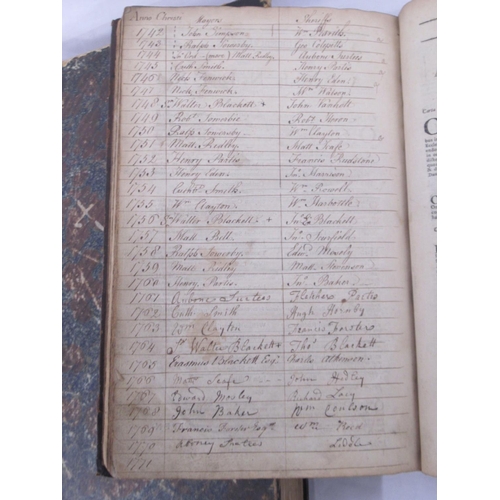 Anno Domini Mayors Sheriffs
1742 John Simpson
1743 Ralph Sowerby Geo
1744 Matt Ridley Aubone Surtees
1745 Cuth Smith Henry Partis
1746 Henry Eden
1747 Nich Fenwick Wm Watson
1748 Sr Walter Blackett John
1749 Robt Sowerbie Robt
1750 Ralph Sowerby Wm Clayton
1751 Matt Ridley Matt Scafe
1752 Henry Partis Francis Rudstone
1753 Henry Eden Jno Harrison
1754 Cuthbt Smith Wm Rowell
1755 Wm Clayton Wm Harbottle
1756 Sr Walter Blackett Jno E Blackett
1757 Matt Bell Jno
1758 Ralph Sowerby Edwd Mosely
1759 Matt Ridley Matt Stevenson
1760 Henry Partis Jno Baker
1761 Aubone Surtees Fletcher Partis
1762 Cuth Smith Hugh Hornby
1763 Wm Clayton Francis Forster
1764 Sr Walter Blackett Thos Blackett
1765 Erasmus Blackett Esqr Charles Atkinson
1766 Matt Scafe John Hedley
1767 Edward Mosley Richard Lacy
1768 John Baker Wm Coulson
1769 Francis Forster Esqr Wm
1770 Surtees Liddle
1771